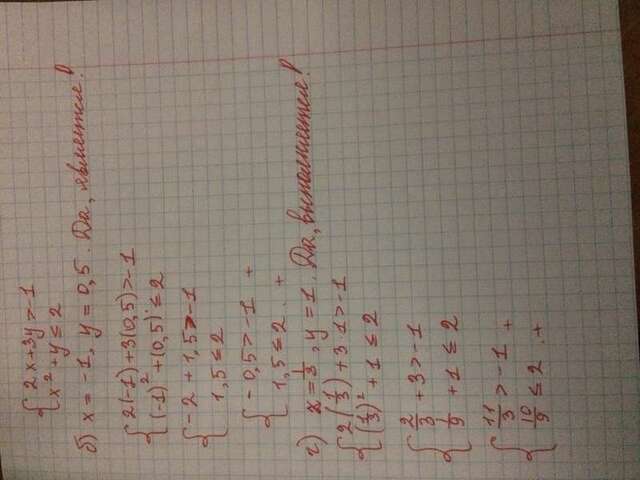 { 2x+3y>-1
{ x²+y≤2
б) x = -1, y = 0,5. Да, является!
{ 2(-1)+3(0,5)>-1
{ (-1)²+(0,5)≤2
{ -2 + 1,5>-1
{ 1,5≤2
{ - 0,5>-1 +
{ 1,5≤2. +
г) x=1/3, y=1. Да, выполняется!
{ 2(1/3)+3·1>-1
{ (1/3)²+1≤2
{ 2/3+3>-1
{ 1/9+1≤2
{ 11/3>-1 +
{ 10/9≤2. +